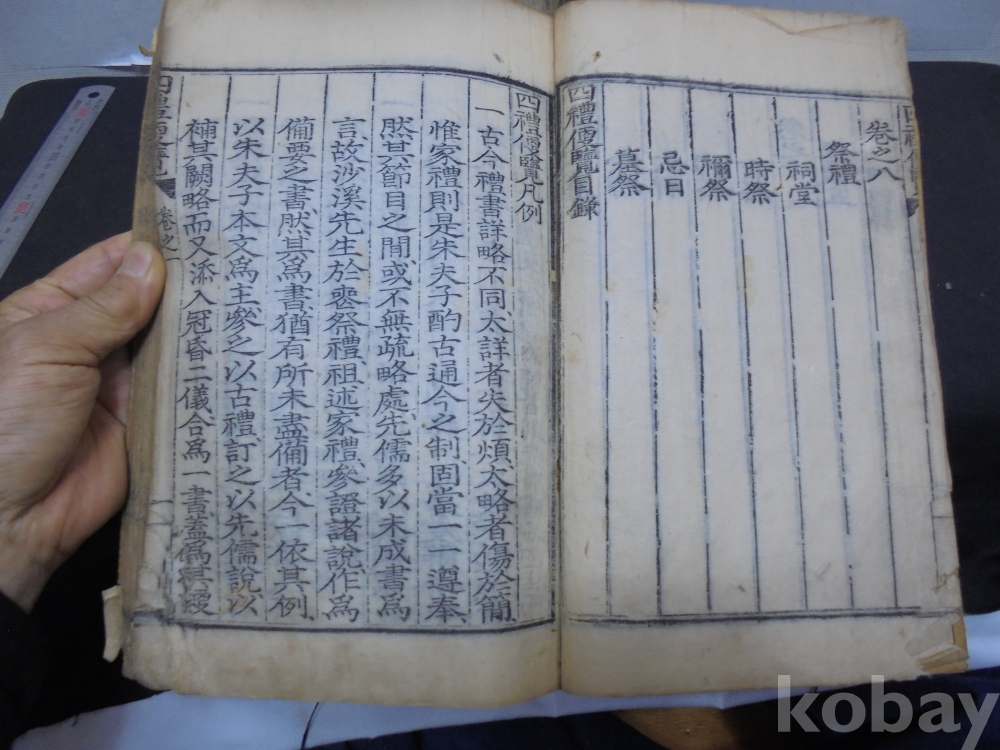 卷之八
祭禮
祠堂
時祭
禰祭
忌日
墓祭
四禮便覽目錄
四禮便覽凡例
一 古今禮書詳略不同、太詳者失於煩、太略者傷於簡、
惟家禮則是朱夫子酌古通今之制、固當一一遵奉、
然其節目之間、或不無疏略處、先儒多以未成書爲
言、故沙溪先生於喪祭禮、祖述家禮、參證諸說、作爲
備要之書、然其爲書、猶有所未盡備者、今一依其例、
以朱夫子本文爲主、參之以古禮、訂之以先儒說、以
補其闕略、而又添入冠昏二儀、合爲一書、蓋爲
卷之一
kobay